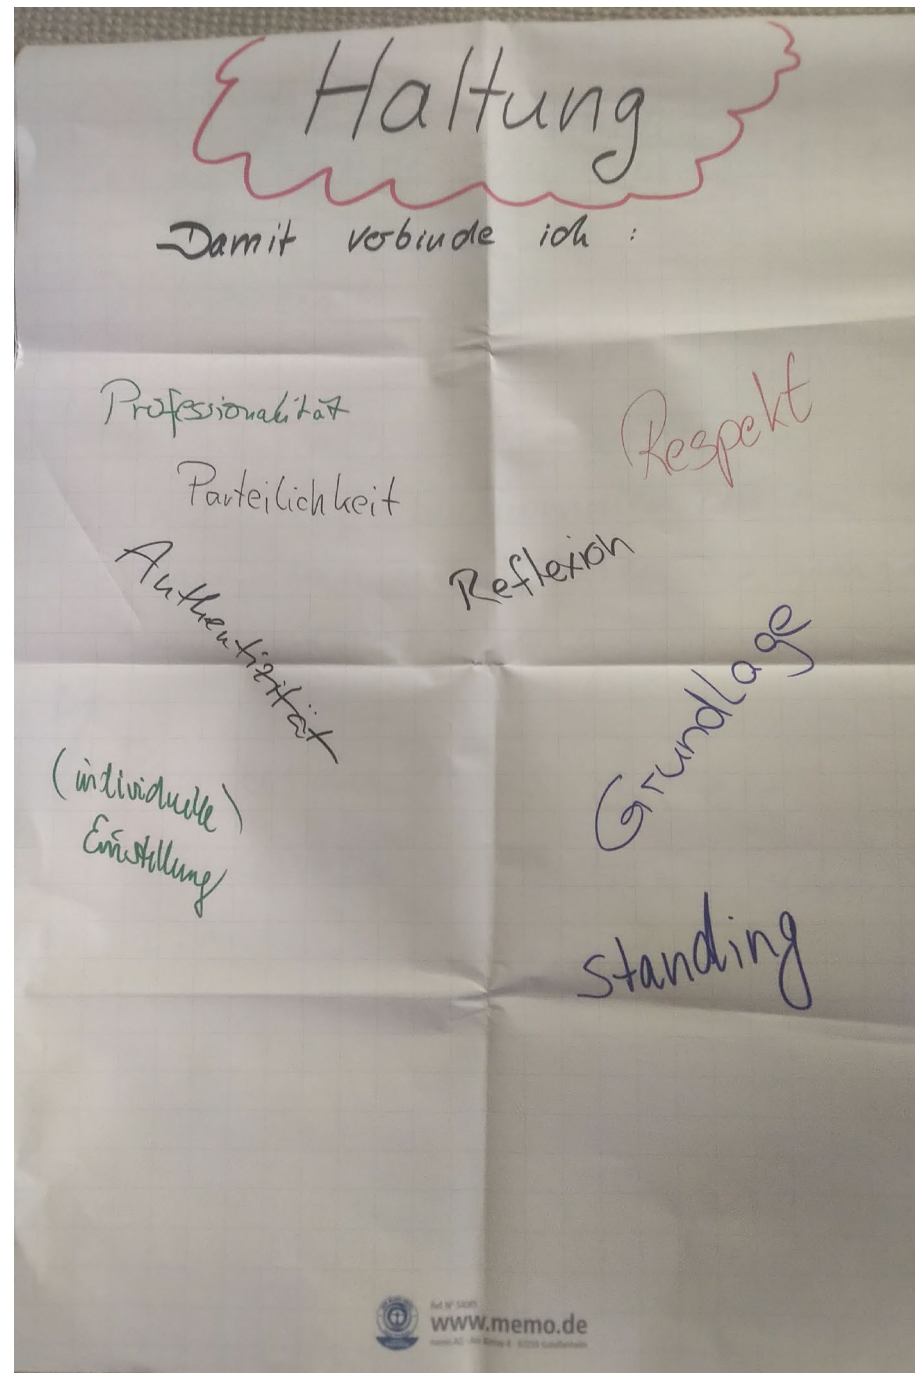 Haltung
Damit verbinde ich :
Professionalität
Respekt
Parteilichkeit
Reflexion
Authentizität
Grundlage
(individuelle)
Einstellung
Standing
www.memo.de